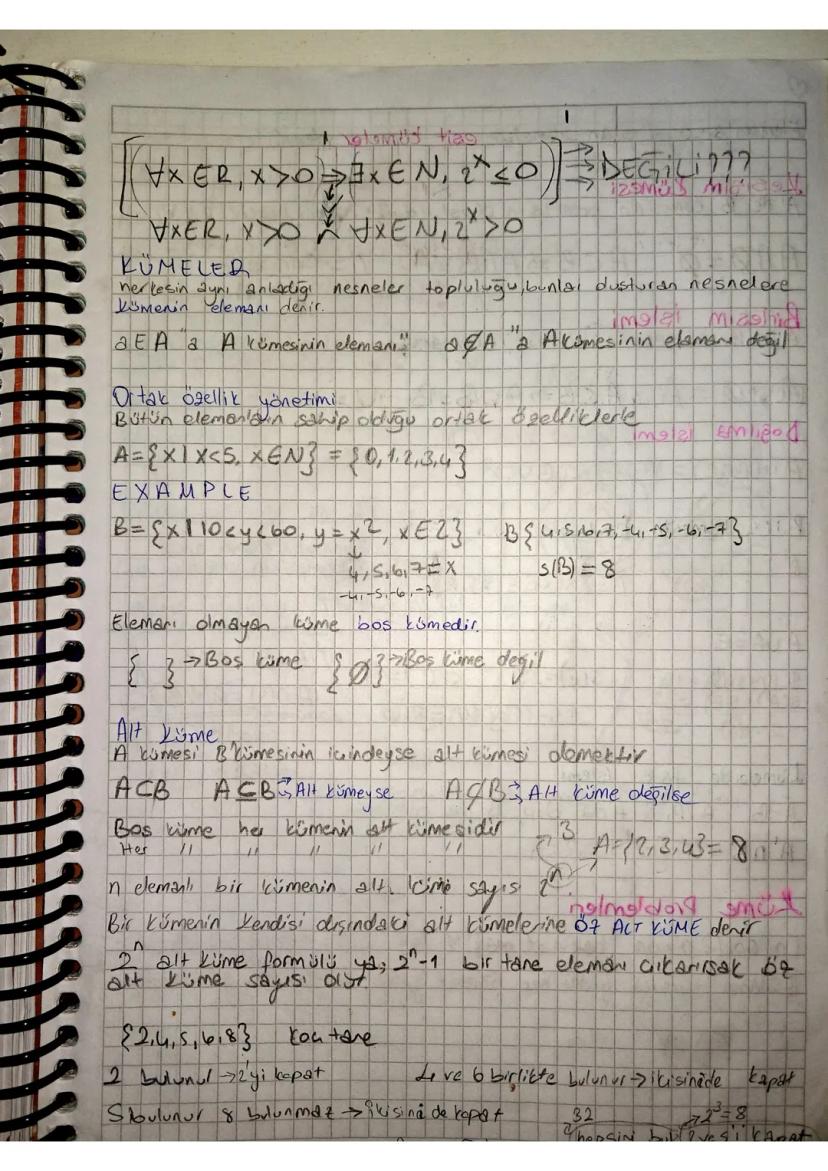 [(∀x∈R, x>0 ⇒ ∃x∈N, 2^x ≤ 0)] → DEĞİLİ???
∀x∈R, x>0 ∧ ∀x∈N, 2^x>0
KÜMELER
herkesin aynı anladığı nesneler topluluğu, bunları oluşturan nesnelere
kümenin elemanı denir.
a∈A "a A kümesinin elemanı" a∉A "a A kümesinin elemanı değil
Ortak özellik yönetimi
Bütün elemanların sahip olduğu ortak özelliklerle
A={x| x<5, x∈N} = {0,1,2,3,4}
EXAMPLE
B={x|10<y<60, y=x², x∈Z} B{4,5,6,7,-4,-5,-6,-7}
4,5,6,7=x s(B)=8
-4,-5,-6,-7
Elemanı olmayan küme boş kümedir.
{ } →Boş küme {∅}→Boş küme değil
Alt Küme
A kümesi B kümesinin içindeyse alt kümesi demektir
A⊂B A⊆B→Alt kümeyse A⊄B→Alt küme değilse
Boş küme her kümenin alt kümesidir
Her " " " " "
2³ A={2,3,4}=8
n elemanlı bir kümenin alt küme sayısı 2ⁿ
Bir kümenin kendisi dışındaki alt kümelerine ÖZ ALT KÜME denir
2ⁿ alt küme formülü ya, 2ⁿ-1 bir tane elemanı çıkarırsak öz
alt küme sayısı olur
{2,4,5,6,8} kaç tane
2 bulunur→2'yi kapat 4 ve 6 birlikte bulunur→ikisinide kapat
5 bulunur 8 bulunmaz→ikisini de kapat 32 →2³=8